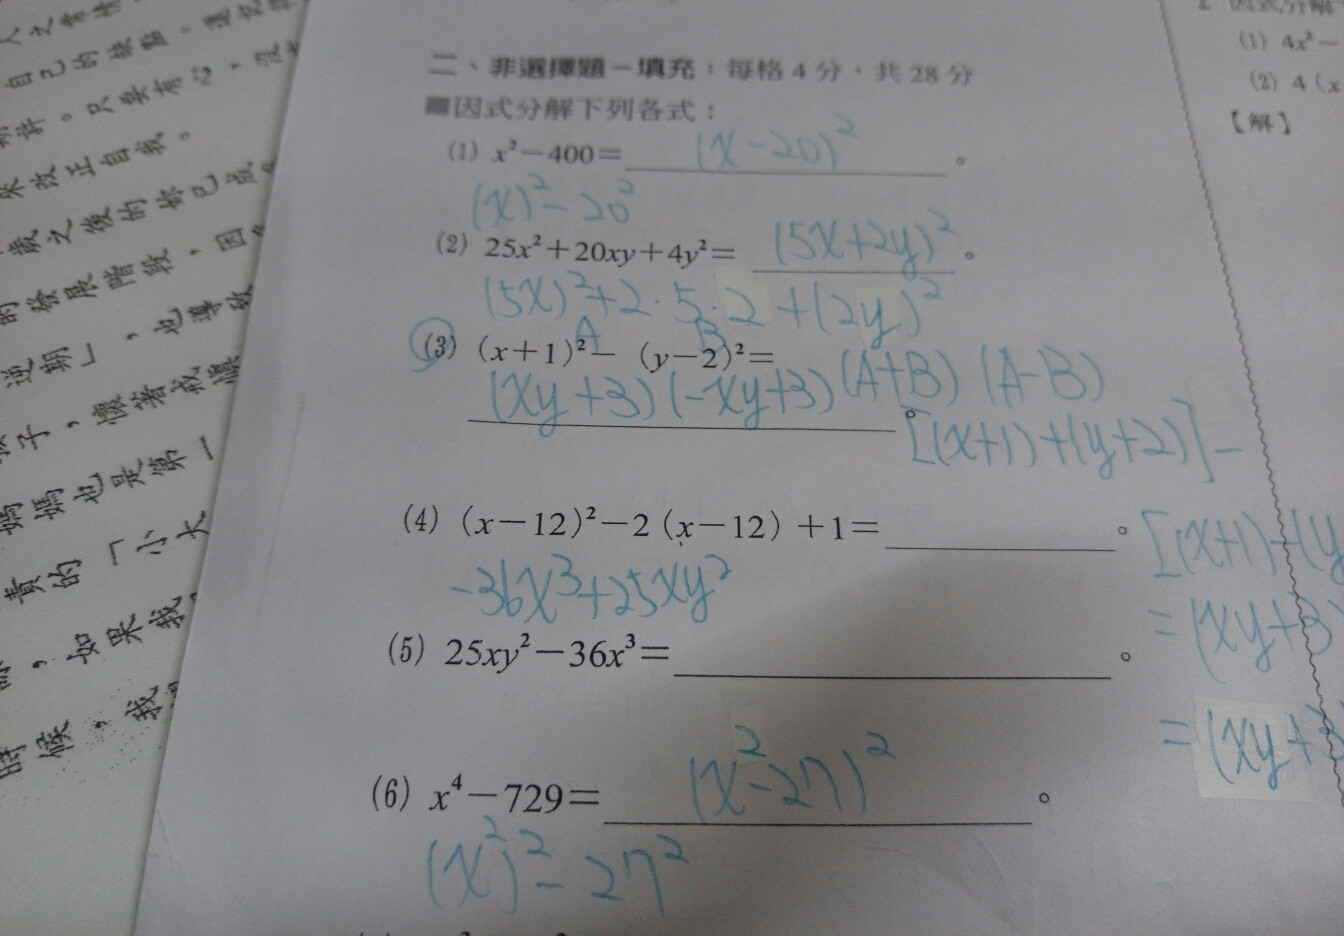 人之常情
自己的缺點。還記
只要有心,沒
來改正自我。
歲之後的
的發展階段,因
逆期」,也導致
孩子,懷著
媽媽也是第一
責的「小大
,如果我
時候,我
二、非選擇題-填充:每格4分,共28分
■因式分解下列各式:
(1) x²-400= (x-20)² 。
(x)²-20²
(2) 25x²+20xy+4y²= (5x+2y)² 。
(5x)²+2·5·2+(2y)²
A B
(3) (x+1)²- (y-2)²=
(xy+3)(-xy+3) 。 (A+B) (A-B)
[(x+1)+(y+2)]-
(4) (x-12)²-2 (x-12) +1= 。
[(x+1)-(y
-36x³+25xy²
= (xy+3)
(5) 25xy²-36x³= 。
= (xy+3
(6) x⁴-729= (x²-27)² 。
(x²)²-27²
2 因式分解
(1) 4x²-
(2) 4(x
【解】